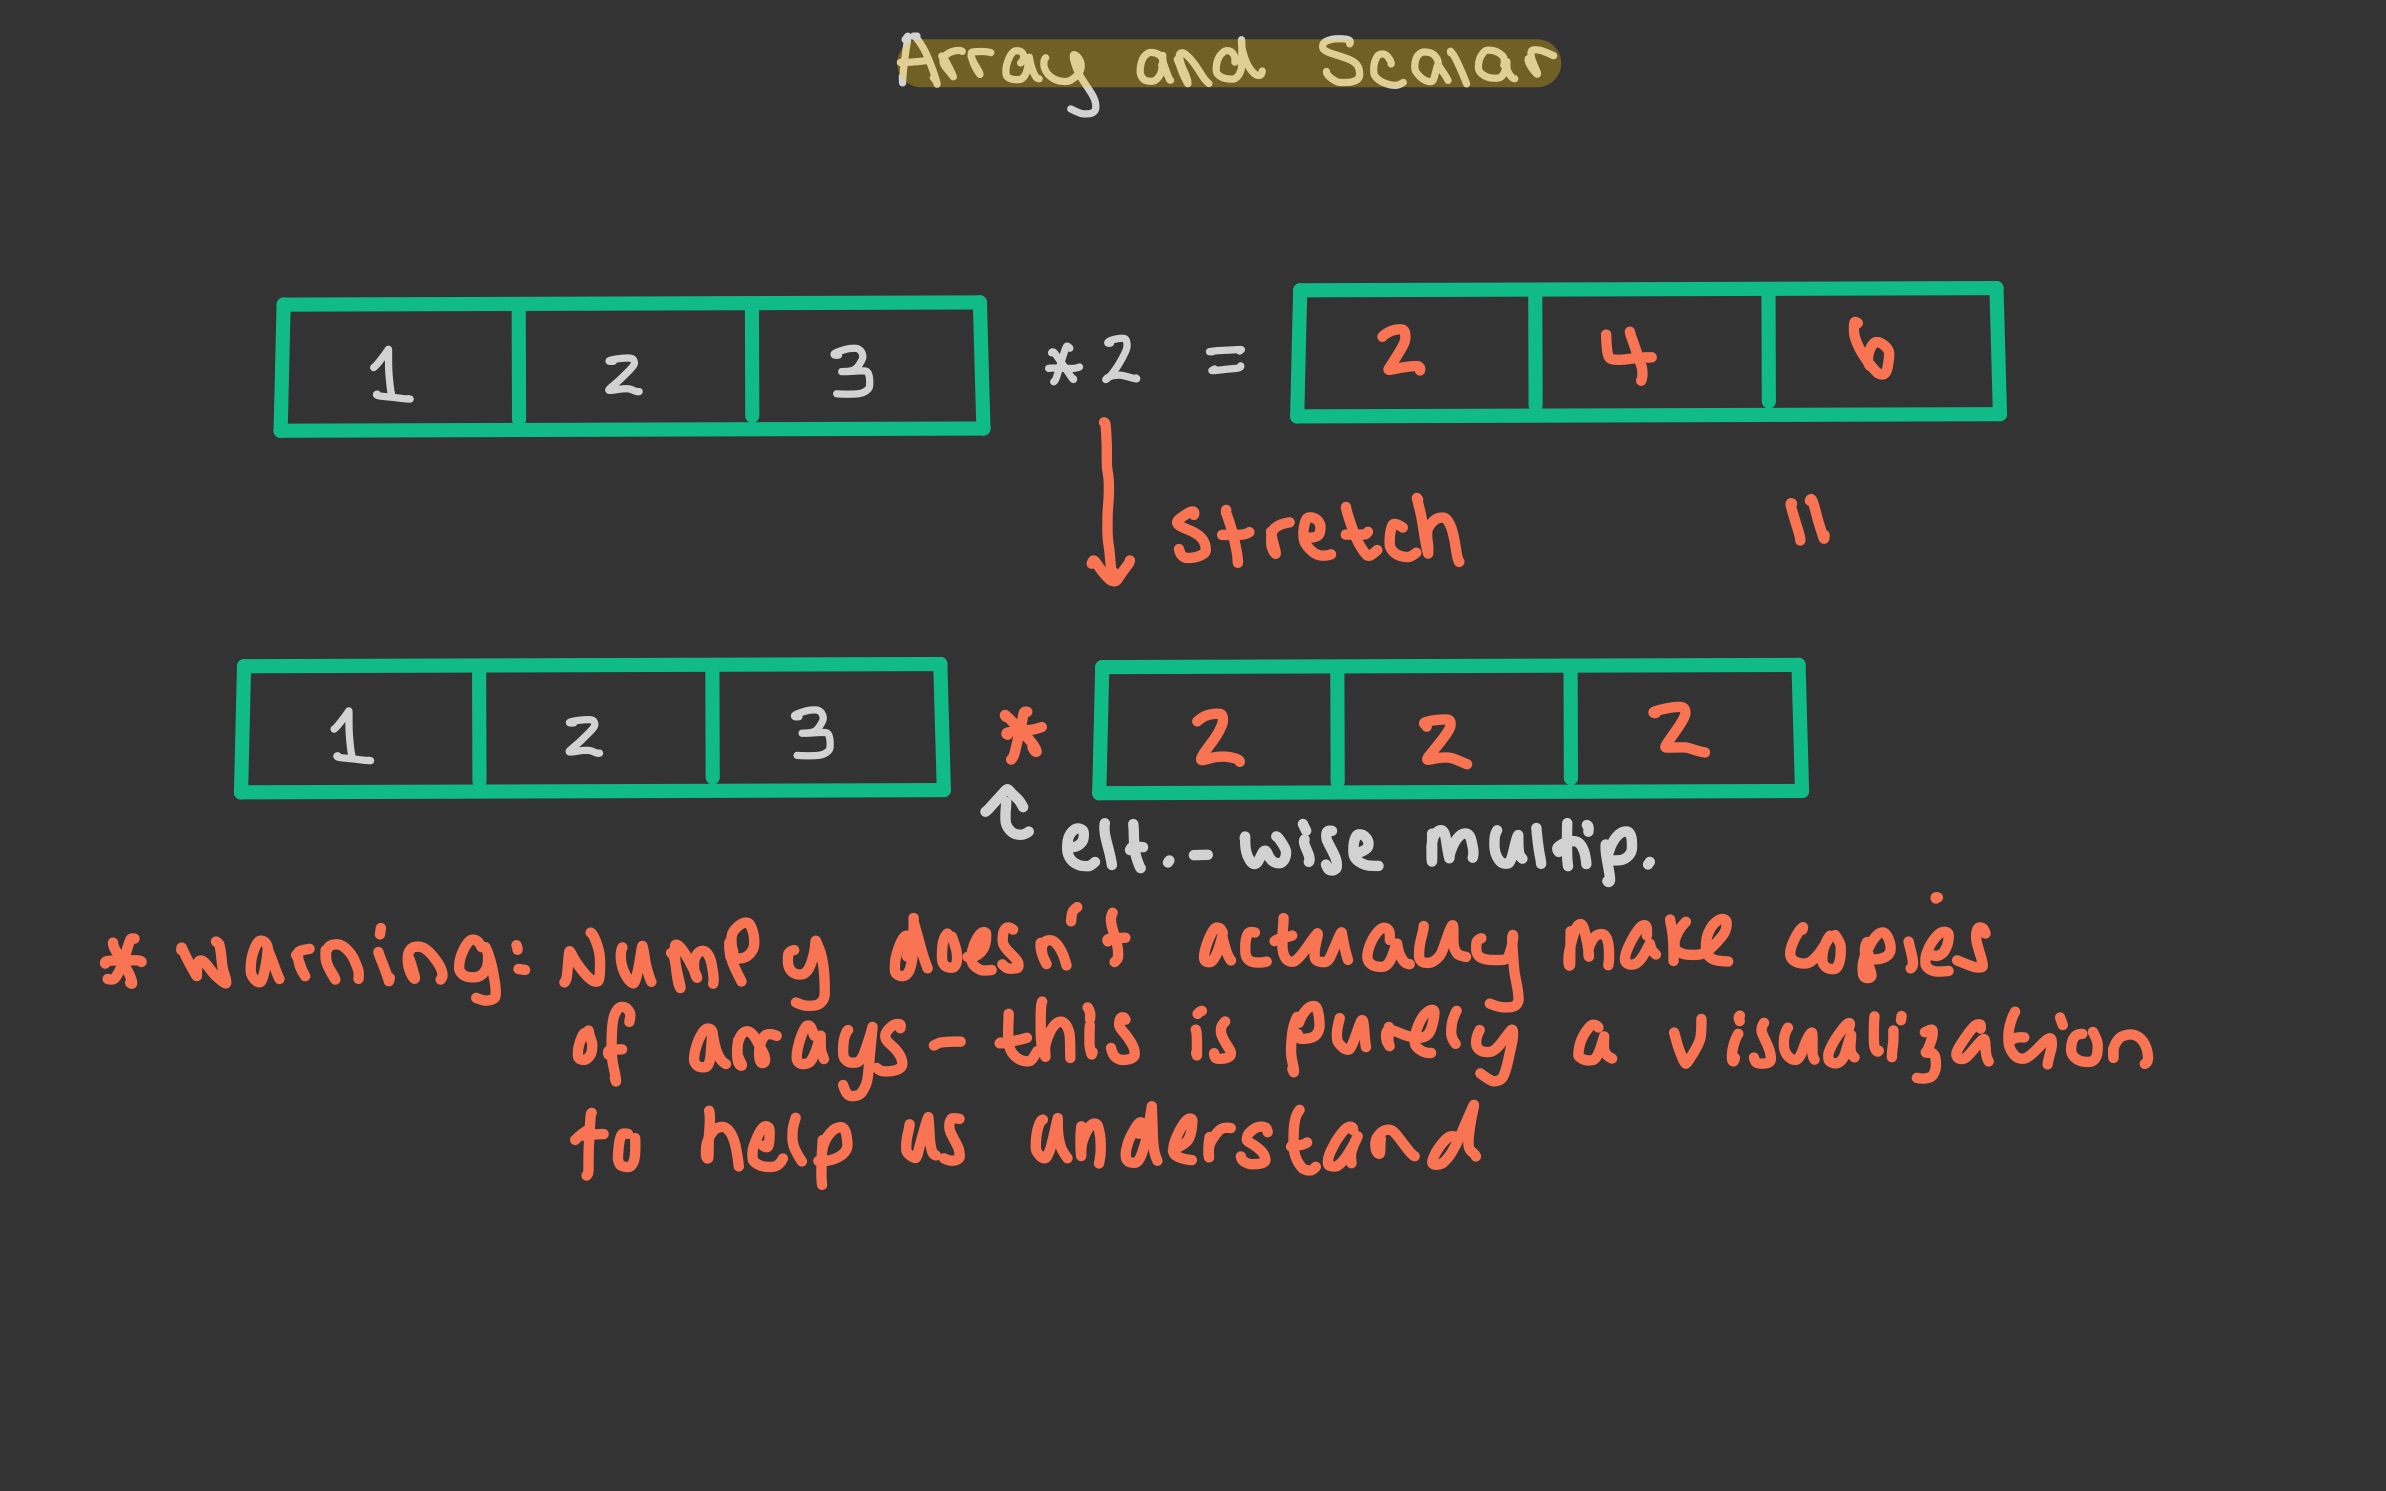 Array and Scalar
1 2 3 *2 = 2 4 6
stretch "
1 2 3 * 2 2 2
elt.-wise multip.
* warning: NumPy doesn't actually make copies
of arrays - this is purely a visualization
to help us understand